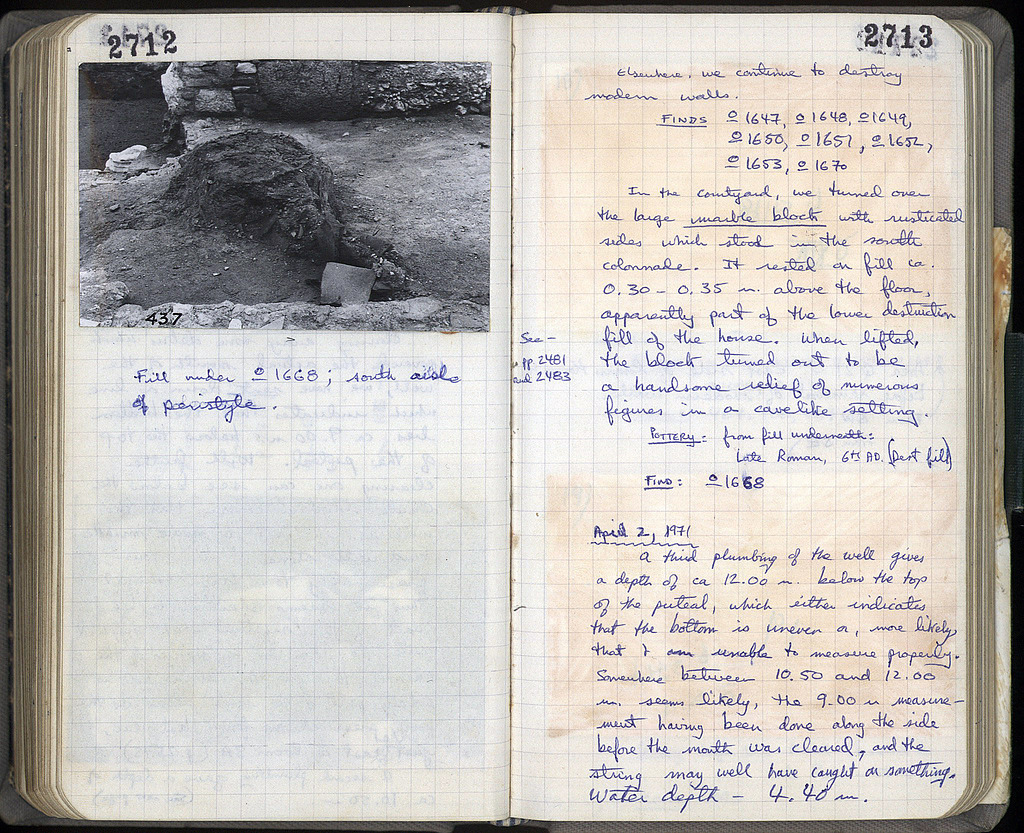 2712
437
Fill under Ω 1668; south aisle
of peristyle.
2713
Elsewhere, we continue to destroy
modern walls.
FINDS Ω 1647, Ω 1648, Ω 1649,
Ω 1650, Ω 1651, Ω 1652,
Ω 1653, Ω 1670
In the courtyard, we turned over
the large marble block with rusticated
sides which stood in the south
colonnade. It rested on fill ca.
0.30 - 0.35 m. above the floor,
apparently part of the lower destruction
fill of the house. When lifted,
the block turned out to be
a handsome relief of numerous
figures in a cavelike setting.
See -
pp. 2481
and 2483
POTTERY: from fill underneath:
Late Roman, 6th AD. (Dest fill)
FIND: Ω 1668
April 2, 1971
A third plumbing of the well gives
a depth of ca 12.00 m. below the top
of the puteal, which either indicates
that the bottom is uneven or, more likely,
that I am unable to measure properly.
Somewhere between 10.50 and 12.00
m. seems likely, the 9.00 m measure-
ment having been done along the side
before the mouth was cleared, and the
string may well have caught on something.
Water depth - 4.40 m.